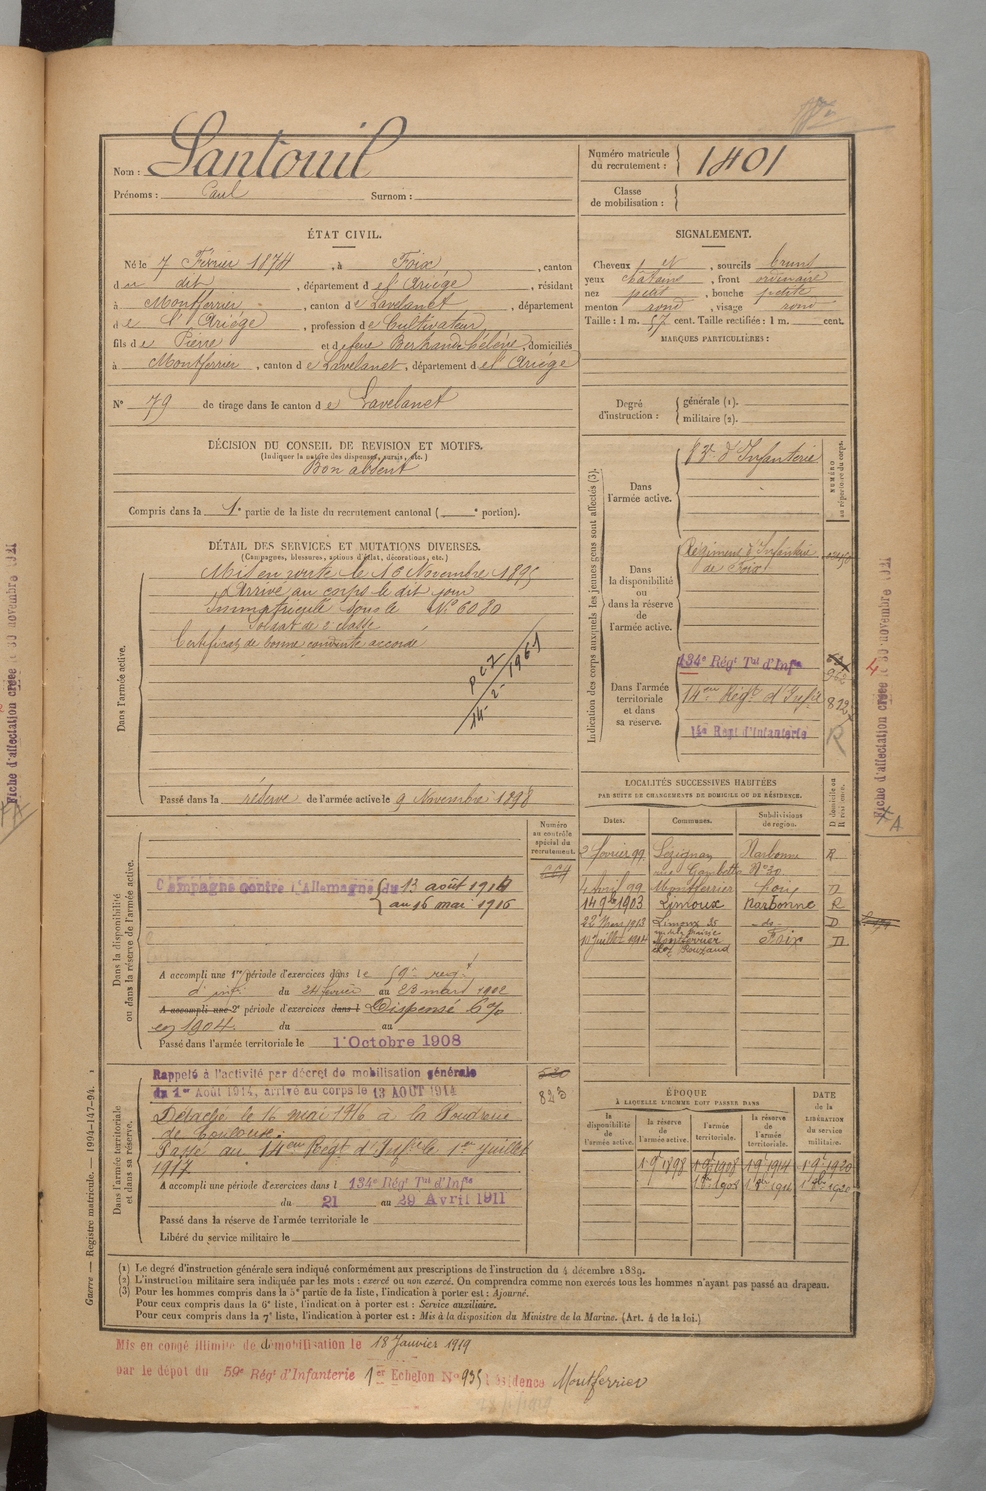 Santouil
Nom :
Prénoms : Paul Surnom :
Numéro matricule du recrutement : 1401
Classe de mobilisation :
ÉTAT CIVIL.
Né le 7 Février 1874, à Foix, canton
du dit, département de l'Ariége, résidant
à Montferrier, canton de Lavelanet, département
de l'Ariége, profession de Cultivateur
fils de Pierre et de feue Bertrand Hélène, domiciliés
à Montferrier, canton de Lavelanet, département de l'Ariége
N° 79 de tirage dans le canton de Lavelanet
DÉCISION DU CONSEIL DE REVISION ET MOTIFS.
(Indiquer la nature des dispenses, sursis, etc.)
Bon absent
Compris dans la 1e partie de la liste du recrutement cantonal ( e portion).
DÉTAIL DES SERVICES ET MUTATIONS DIVERSES.
(Campagnes, blessures, actions d'éclat, décorations, etc.)
Dans l'armée active.
Mis en route le 16 Novembre 1895
Arrivé au corps le dit jour
Immatriculé sous le N° 6080
Soldat de 2 classe
Certificat de bonne conduite accordé
14-2-1961
Passé dans la réserve de l'armée active le 9 Novembre 1898
Dans la disponibilité ou dans la réserve de l'armée active.
Numéro au contrôle spécial du recrutement.
Campagne contre l'Allemagne du 13 août 1914
au 16 mai 1916
A accompli une 1re période d'exercices dans le 59e reg.t
d'inf. du 24 février au 23 mars 1902
A accompli une 2e période d'exercices dans l Dispensé 6%
en 1904 du au
Passé dans l'armée territoriale le 1 Octobre 1908
Dans l'armée territoriale et dans sa réserve.
Rappelé à l'activité par décret de mobilisation générale
du 1er Août 1914, arrivé au corps le 13 AOUT 1914
823
Détaché le 16 mai 1916 à la Poudrerie
de Toulouse.
Passé au 14eme Regt d'Infie le 1er Juillet
1917.
A accompli une période d'exercices dans l 134e Régt Tal d'Infie
du 21 au 29 Avril 1911
Passé dans la réserve de l'armée territoriale le
Libéré du service militaire le
SIGNALEMENT.
Cheveux et, sourcils bruns
yeux châtains, front ordinaire
nez petit, bouche petite
menton rond, visage rond
Taille : 1 m. 57 cent. Taille rectifiée : 1 m. cent.
MARQUES PARTICULIÈRES :
Degré d'instruction : générale (1).
militaire (2).
Indication des corps auxquels les jeunes gens sont affectés (3).
NUMÉRO au répertoire du corps.
Dans l'armée active.
83e d'Infanterie
Dans la disponibilité ou dans la réserve de l'armée active.
Régiment d'Infanterie
de Foix
Dans l'armée territoriale et dans sa réserve.
134e Régt Tal d'Infie
14eme Regt d'Infie
14e Regt d'Infanterie
R
LOCALITÉS SUCCESSIVES HABITÉES
PAR SUITE DE CHANGEMENTS DE DOMICILE OU DE RÉSIDENCE.
Dates. Communes. Subdivisions de région. D domicile ou R résidence.
2 février 99 Lézignan Narbonne R
rue Gambetta N° 20
4 Avril 99 Montferrier Foix D
14 9bre 1903 Limoux Narbonne R
22 Mars 1913 Limoux -de- D
Montferrier Foix D
ÉPOQUE
À LAQUELLE L'HOMME DOIT PASSER DANS
DATE de la LIBÉRATION du service militaire.
la disponibilité de l'armée active. la réserve de l'armée active. l'armée territoriale. la réserve de l'armée territoriale.
1 9bre 1898 1 9bre 1908 1 9bre 1914 1 9bre 1920
(1) Le degré d'instruction générale sera indiqué conformément aux prescriptions de l'instruction du 4 décembre 1889.
(2) L'instruction militaire sera indiquée par les mots : exercé ou non exercé. On comprendra comme non exercés tous les hommes n'ayant pas passé au drapeau.
(3) Pour les hommes compris dans la 5e partie de la liste, l'indication à porter est : Ajourné.
Pour ceux compris dans la 6e liste, l'indication à porter est : Service auxiliaire.
Pour ceux compris dans la 7e liste, l'indication à porter est : Mis à la disposition du Ministre de la Marine. (Art. 4 de la loi.)
Guerre — Registre matricule. — 1994-147-94.
Mis en congé illimité de démobilisation le 18 Janvier 1919
par le dépot du 59e Régt d'Infanterie 1er Echelon N° 935 Résidence Montferrier
Fiche d'affectation créée le 30 novembre 1921
A